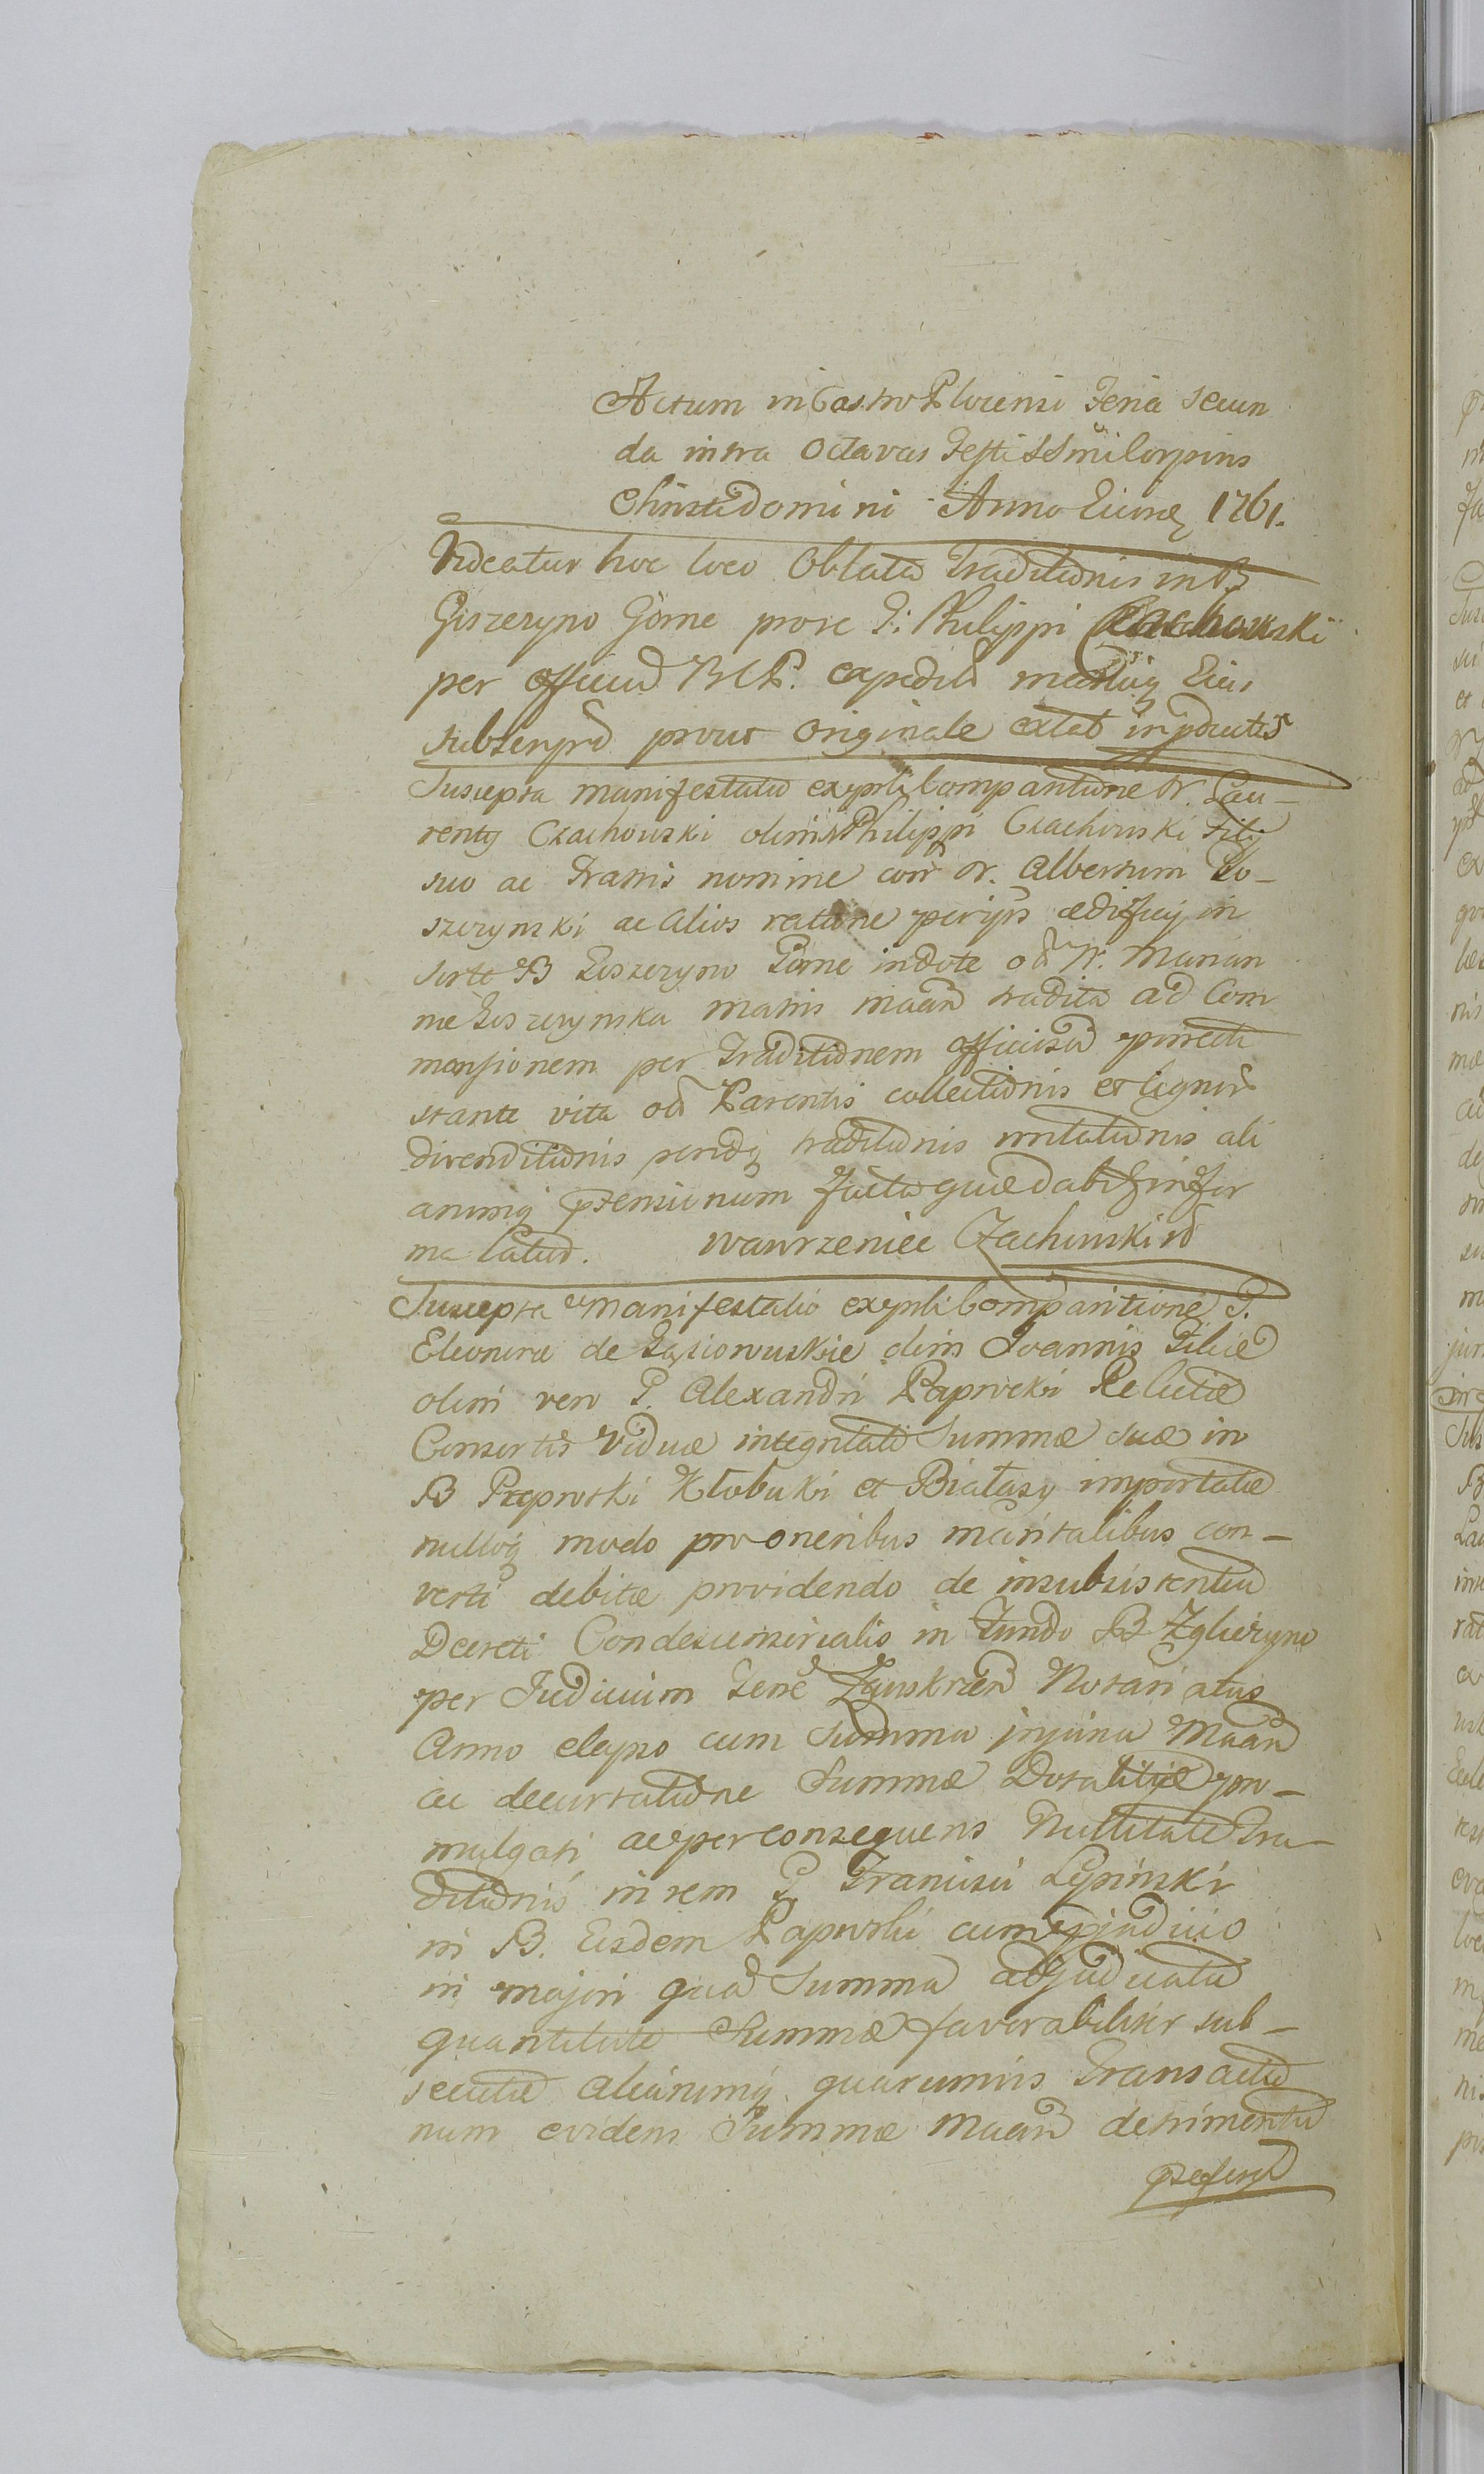 Actum in Castro Plocensi Feria Secun
da intra Octavas Festi SSmi Corporis
Christi Domini Anno Eiusq 1761.
Videatur hoc loco Oblata Traditionis in B
Giszczyno Gorne pro re P: Philippi Czachowski
per officiū BCP. expedit manūq Eius
subscript prout Originale extat in
Suscepta manifestatio ex Comparitione N. Lau-
rentij Czachowski olim N Philippi Czachowski Filij
suo ac Fratris nomine con N. Albertum Go-
szczynski ac Alios ratione aedificij in
Sorte B Goszczyno Gorne in dote od N. Marian
nae Goszczynska matris maan tradita ad Com
mansionem per Traditionem officiosa
stante vita od Parentis collectionis et lignor
divenditionis traditionis ali
arumq praetensionum facta
ma latius. Wawrzeniec Czachowski
Suscepta Manifestatio ex Comparitione P.
Eleonora de olim Joannis Filiae
olim vero P. Alexandri Paprocki Relictae
Consortis Viduae integritati Summae suae in
B Paprotki Kłobuki et Białasy importatae
nulloq modo pro oneribus maritalibus con-
verti debitae providendo de insubsistentia
Decreti Condescensorialis in Fundo B Zgliczyno
per Judicium Terre Zauskren Notariatus
Anno elapso cum Summa maan
ac decurtatione Summae Dotalitiae pro-
mulgati ac per consequens Nullitate Tra-
ditionis in rem P. Francisci Lipinski
in B. Eisdem Paprotki cum prjudicio
in majori qua Summa adjudicata
quantitate Summae favorabiliter sub-
secutae aliarumq quarumvis Transactio
num evidens Summae Maan detrimentu